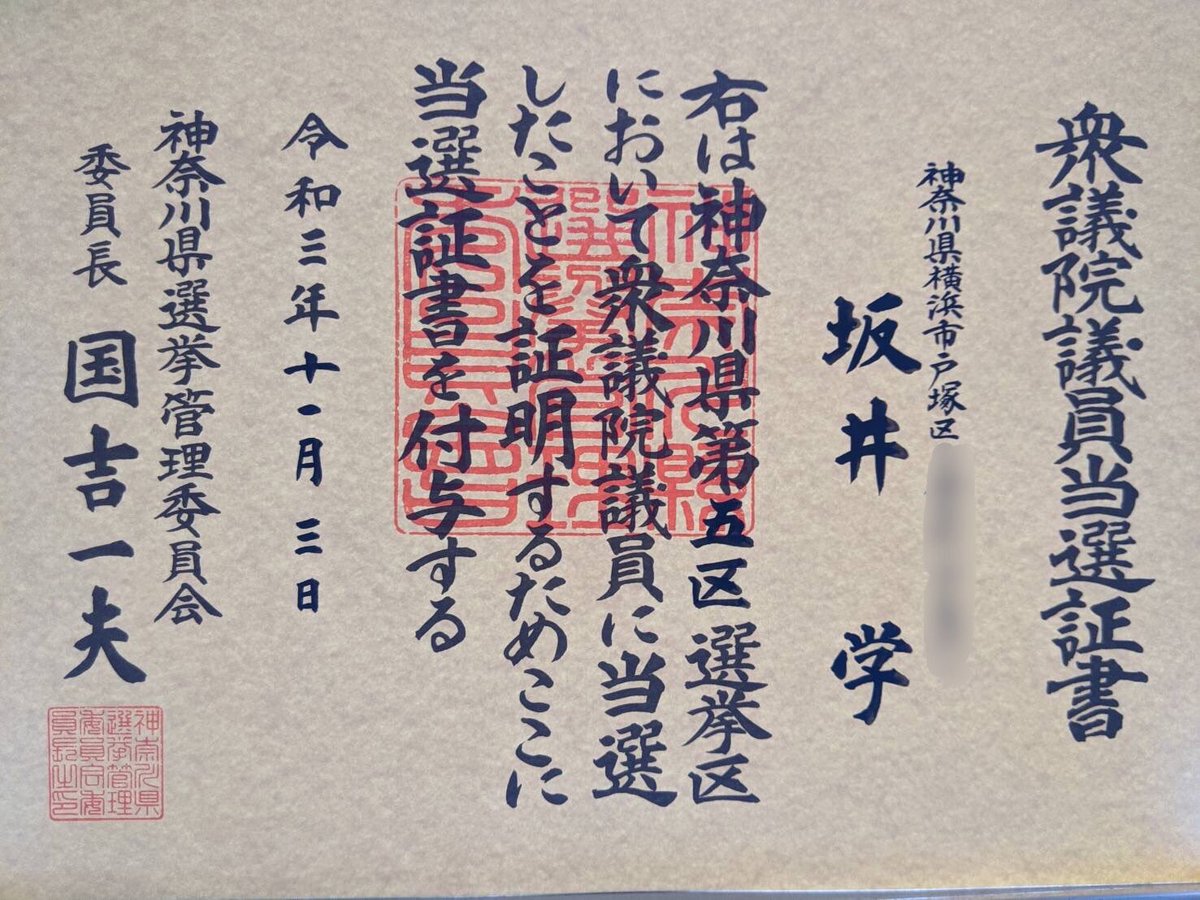 衆議院議員当選証書
神奈川県横浜市戸塚区
坂井 学
右は神奈川県第五区選挙区
において衆議院議員に当選
したことを証明するためここに
当選証書を付与する
令和三年十一月三日
神奈川県選挙管理委員会
委員長 国吉一夫
神奈川県
選挙管理
委員会委
員長之印